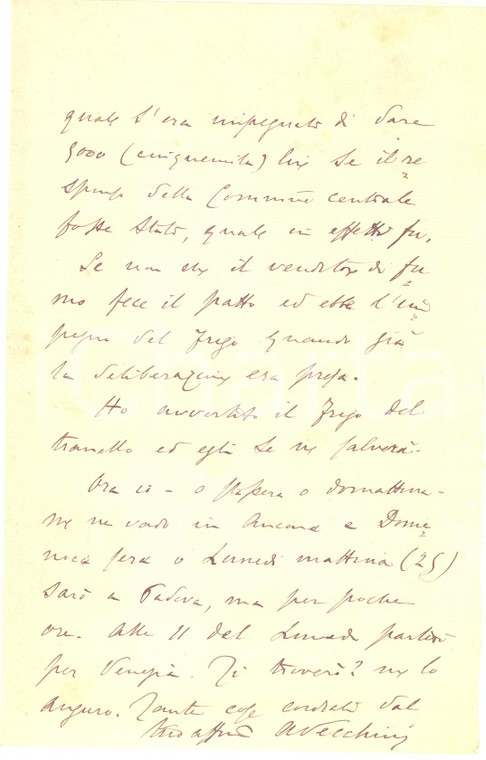 quale s'era impegnato di dare
5000 (cinquemila) lire se il re
sponso della Commissne centrale
fosse stato, quale in effetto fu.
Se non che il venditore di fu
mo fece il patto ed ebbe l'im
pegno del Frigo quando già
la deliberazione era presa.
Ho avvertito il Frigo del
tranello ed egli se ne salverà.
Ora io - o stasera o domattina -
me ne vado in Ancona e Dome
nica sera o Lunedì mattina (25)
sarò a Padova, ma per poche
ore. Alle 11 del Lunedì partirò
per Venezia. Ti troverò? me lo
auguro. Tante cose cordiali dal
tuo affmo AVecchini